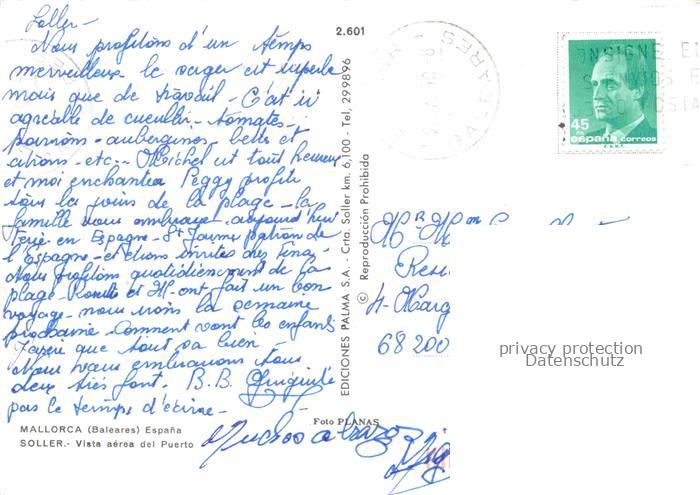 Soller -
Nous profitons d'un temps
merveilleux le verger est superbe
mais que de travail - C'est si
agréable de cueillir - tomates -
poivrons - aubergines, belles et
citrons - etc - Michel est tout heureux
et moi enchantée Peggy profite
tous les jours de la plage - la
famille vous embrasse - aujourd'hui
Ferié en Espagne - St Jaume patron de
l'Espagne - et étions invités chez
Nous profitons quotidiennement de la
plage et M - ont fait un bon
voyage - nous irons la semaine
prochaine - Comment vont les enfants
J'espère que tout va bien
Nous vous embrassons tous
deux très fort. B.B.
pas le temps d'écrire -
MALLORCA (Baleares) España
SOLLER.- Vista aérea del Puerto
Foto PLANAS
Muchos abrazos
2.601
EDICIONES PALMA S.A. - Crta. Soller km. 6,100 - Tel, 299896
© Reproducción Prohibida
BALEARES
45
españa correos
F.N.M.T.
CONSIGNE EN
ENVIOS
POSTA
Mr Mme
Resi
4 - Marg
68200
privacy protection
Datenschutz